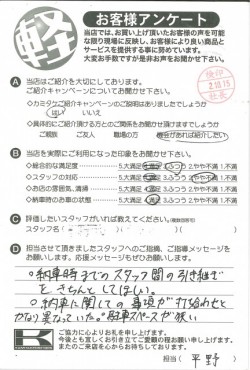 軽
お客様アンケート
当店では、お買い上げ頂いたお客様の声を可能
な限り現場に反映し、お客様により良い商品と
サービスを提供する事に努めています。
大変お手数ですが是非お声をお聞かせ下さい。
Ⓐ 当店はご紹介を大切にしております。
ご紹介キャンペーンについてお聞かせ下さい。
・カミタケご紹介キャンペーンのご説明はありましたでしょうか
はい いいえ
・具体的にご紹介頂ける方とのご関係をお聞かせ頂けますでしょうか
ご親族 ご友人 職場の方 機会があれば紹介したい
Ⓑ 当店を実際ご利用になった印象をお聞かせ下さい。
・総合的な満足度 5大満足 4満足 3ふつう 2やや不満 1不満
・スタッフの対応 5大満足 4満足 3ふつう 2やや不満 1不満
・お店の雰囲気、清掃 5大満足 4満足 3ふつう 2やや不満 1不満
・納車時のお車の状態 5大満足 4満足 3ふつう 2やや不満 1不満
Ⓒ 評価したいスタッフがいれば教えてください。(複数回答可)
スタッフ名
Ⓓ 担当させて頂きましたスタッフへのご指摘、ご指導メッセージを
お願いします。応援メッセージもぜひお願いします。
○納車時までのスタッフ間の引き継ぎ
をきちんとしてほしい。
○納車に関しての事項が打ち合わせと
かなり異なっていた。駐車スペースが狭い
ご協力に心よりお礼を申し上げます。
今後とも宜しくお引き立てご愛顧の程お願い申し上げます。
またのご来店を心からお待ちしております。
担当( 平野 )